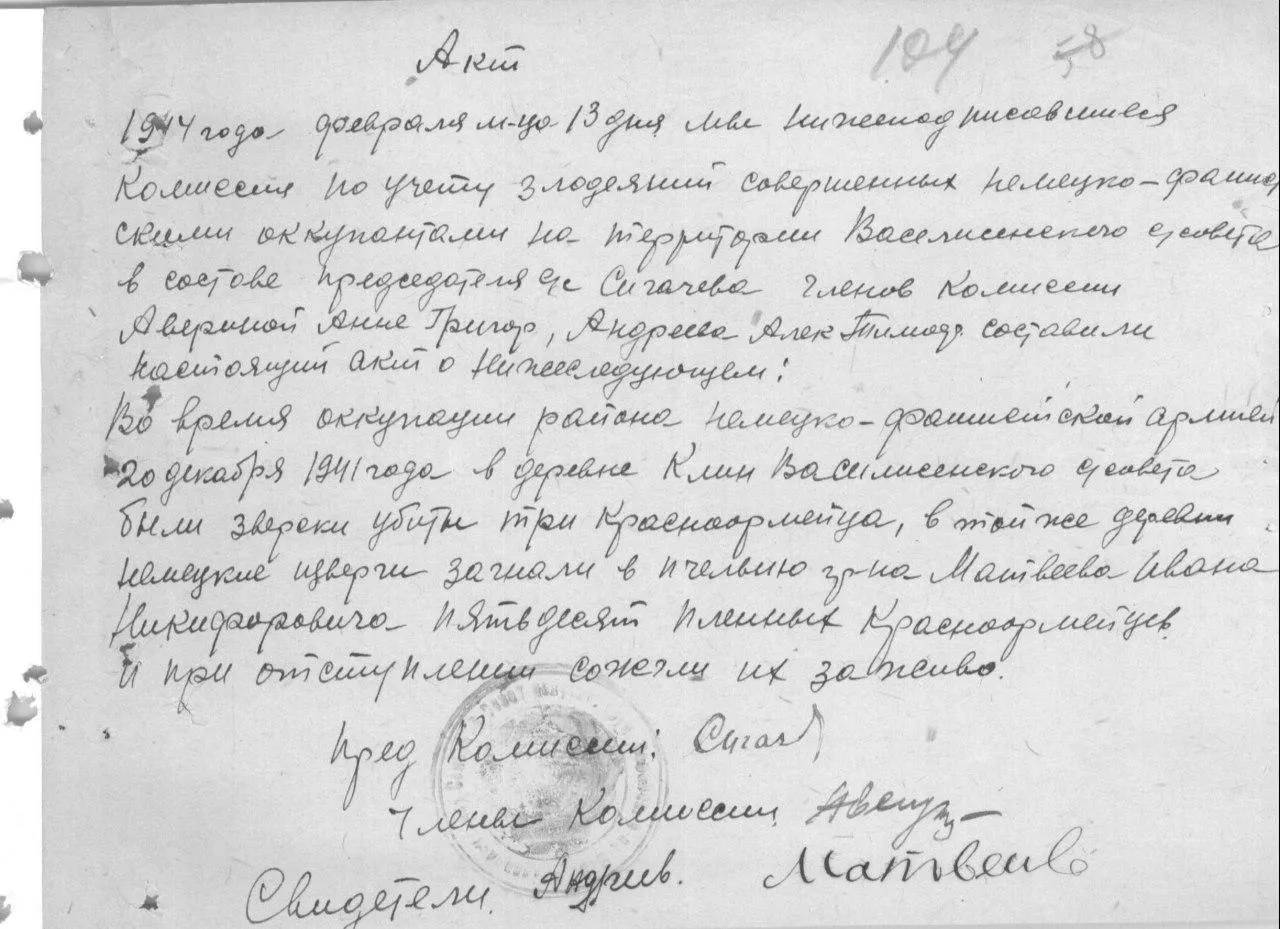 Акт
104 58
1944 года февраля м-ца 13 дня мы нижеподписавшиеся
Комиссия по учету злодеяний совершенных немецко-фашист
скими оккупантами на территории Василисенского с/совета
в составе председателя с/с Сигачева членов комиссии
Авериной Анне Григор, Андреева Алек Тимоф. составили
настоящий акт о нижеследующем:
Во время оккупации района немецко-фашистской армией
20 декабря 1941 года в деревне Клин Василисенского с/совета
были зверски убиты три красноармейца, в той же деревни
немецкие изверги загнали в пчельню гр-на Матвеева Ивана
Никифоровича пятьдесят пленных Красноормейцев
и при отступлении сожгли их за живо.
Пред Комиссии: Сигач
Члены Комиссии
Андреев.
Свидетели. Матвеев